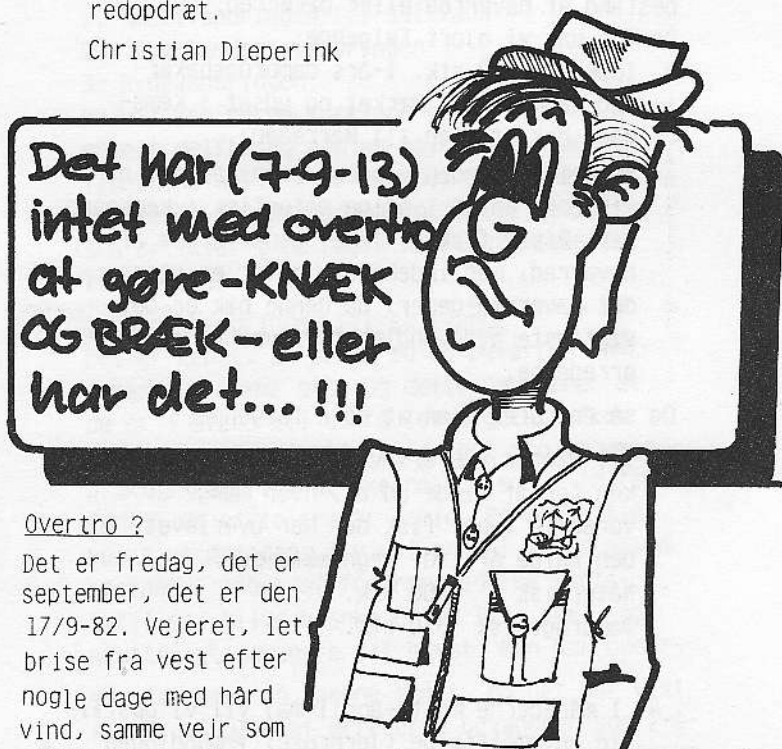 redopdræt.
Christian Dieperink
Det har (7-9-13)
intet med overtro
at gøre-KNÆK
OG BRÆK-eller
har det...!!!
Overtro ?
Det er fredag, det er
september, det er den
17/9-82. Vejeret, let
brise fra vest efter
nogle dage med hård
vind, samme vejr som